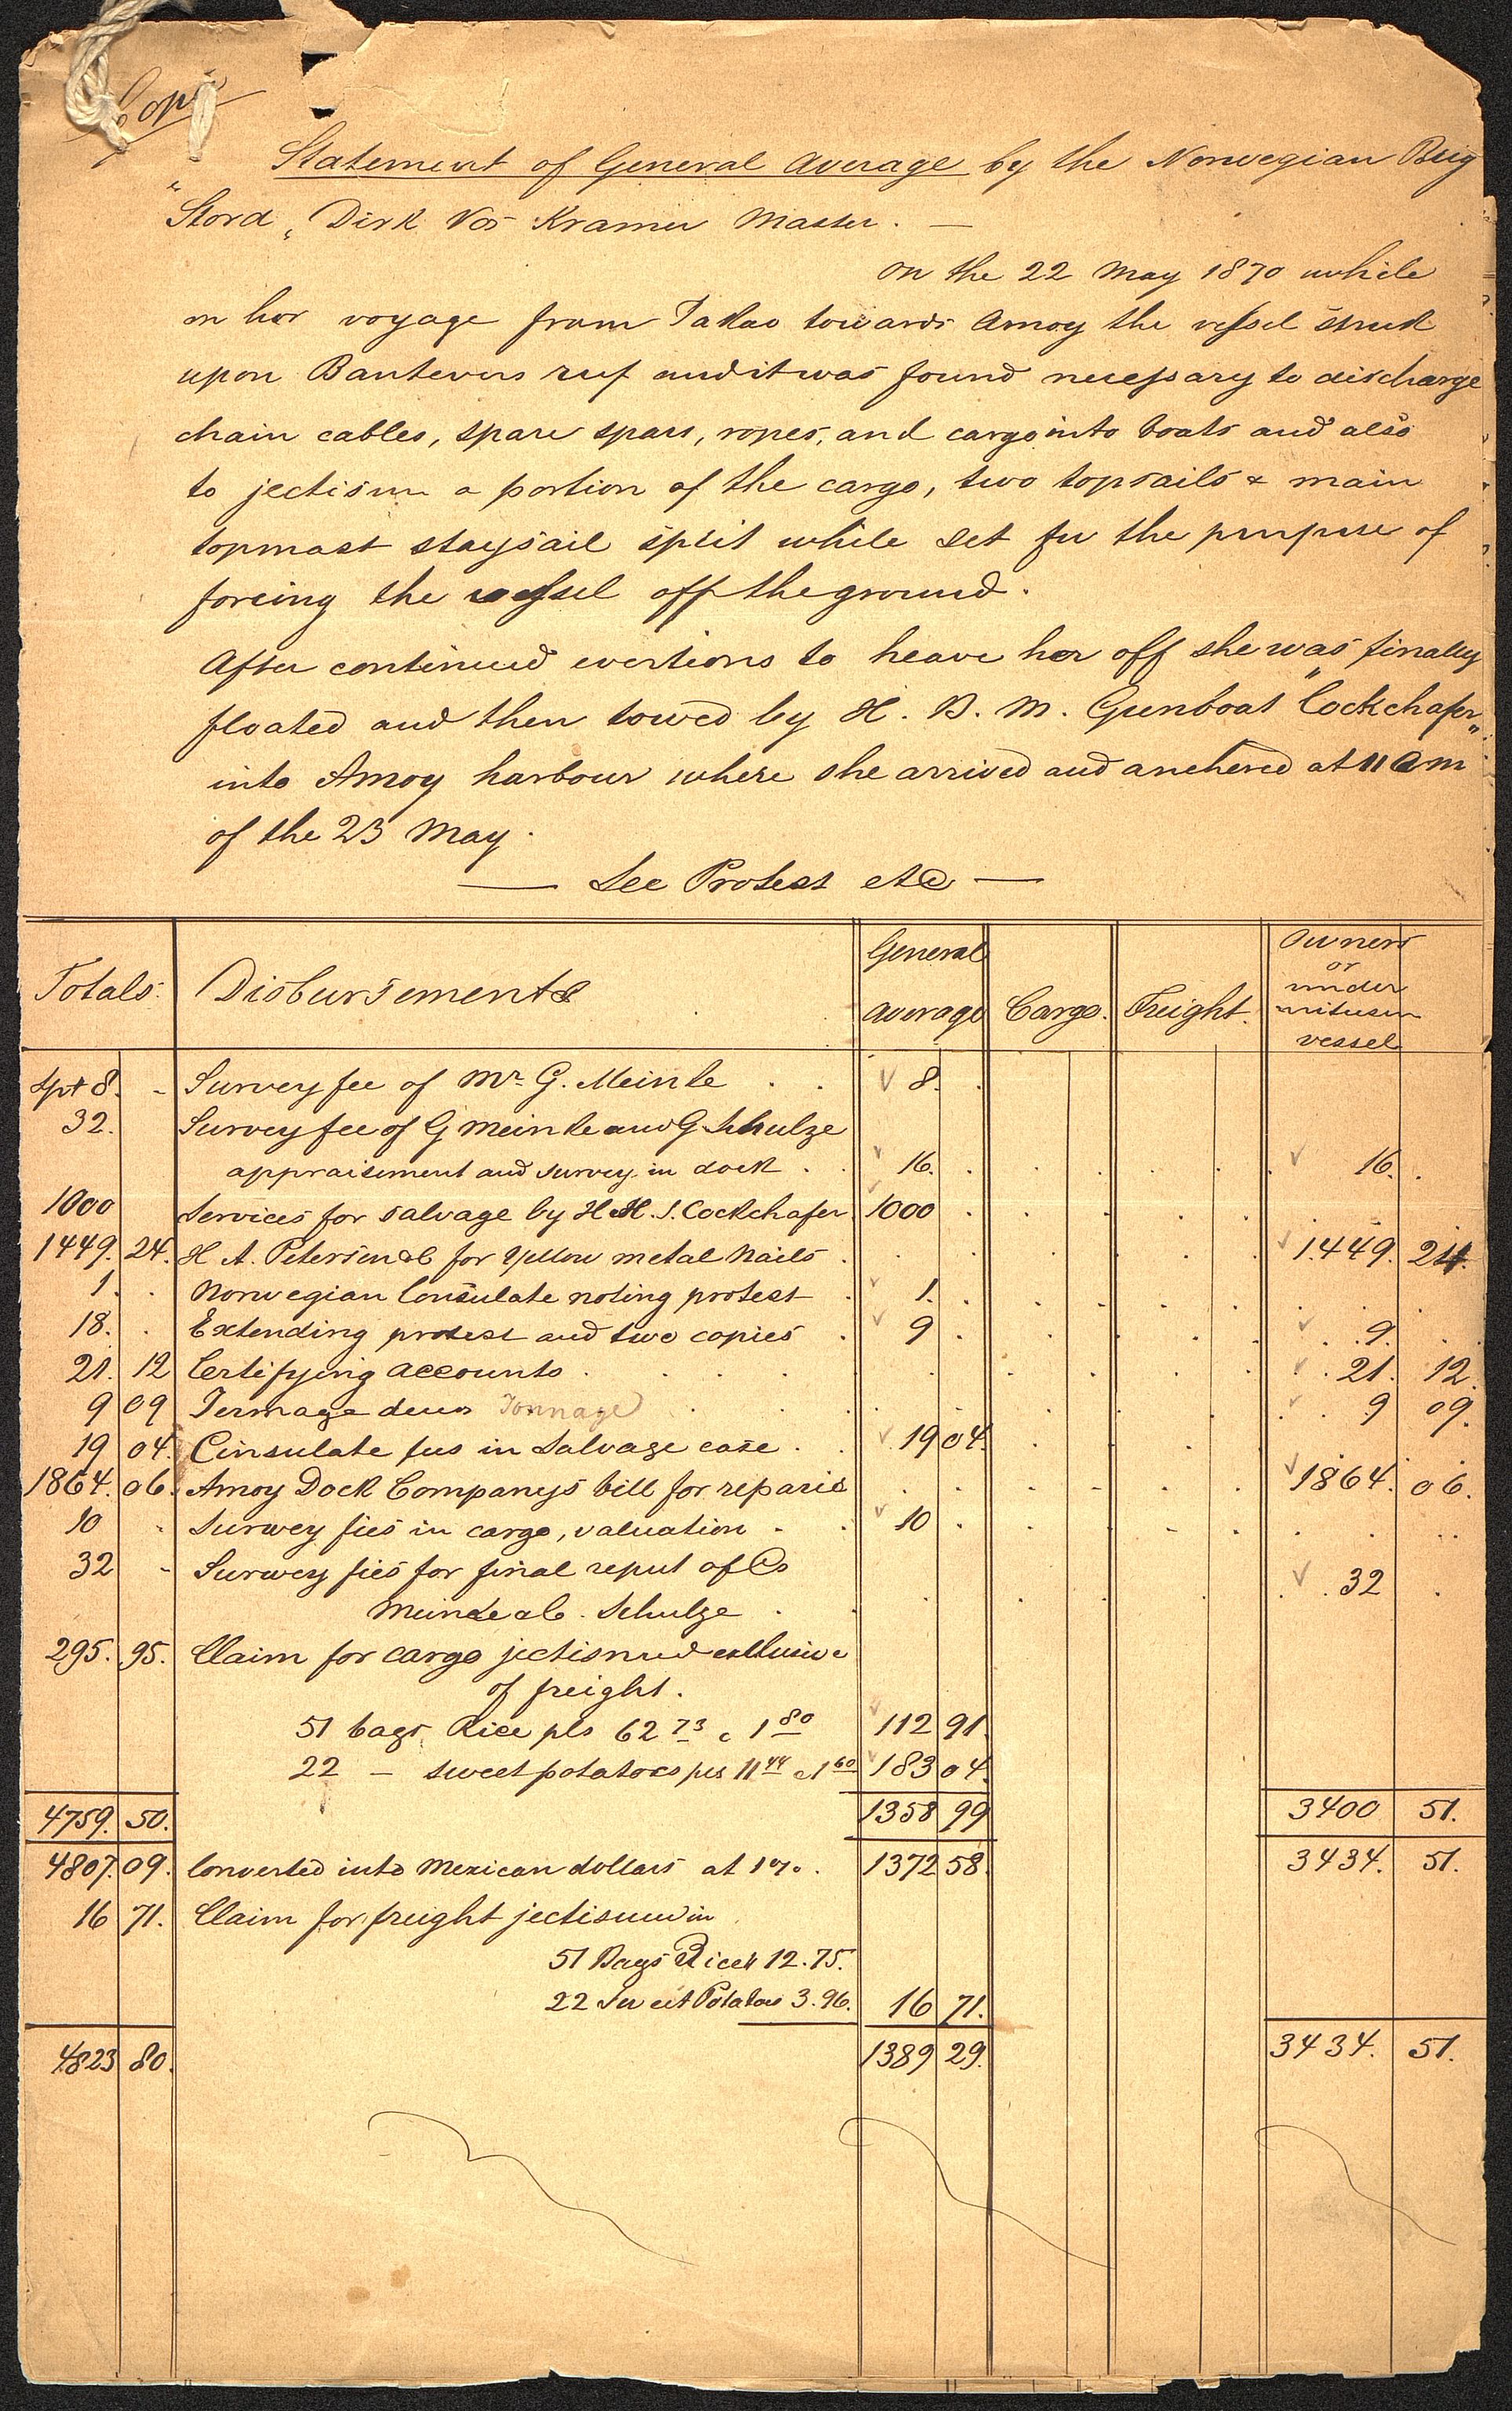 Copy
Statement of General Average by the Norwegian Brig
"Stord„ Dirk Vos Kramer Master. —
on the 22 May 1870 while
on her voyage from Takao towards Amoy the vessel struck
upon Bantevers reef and it was found necessary to discharge
chain cables, spare spars, ropes, and cargo into boats and also
to jectison a portion of the cargo, two topsails & main
topmast staysail split while set for the purpose of
forcing the vessel off the ground.
After continued evertions to heave her off she was finally
floated and then towed by H. B. M. Gunboat "Cockchafer„
into Amoy harbour where she arrived and anchered at 11 am
of the 23 May.
— See Protest etc —
Totals. Disbursements General Average Cargo. Freight. Owners or under vessel
8. - Survey fee of Mr. G. Meinke . . 8. .
32. Survey fee of G Meinke and G Schulze
appraisement and survey in dock . . 16. . 16. .
1000 Services for salvage by H.M.S. Cockchafer 1000 .
1449. 24. H A. Petersen & C for Yellow metal Nails . 1449. 24.
1. . Norwegian Consulate noting protest . 1. .
18. . Extending protest and two copies . 9 . 9.
21. 12 Certifying accounts . 21. 12.
9 09 Tonnage 9 09.
19 04. Consulate fees in Salvage case . . 19 04.
1864. 06. Amoy Dock Companys bill for reparis 1864. 06.
10 . Survey fies in cargo, valuation . . 10 .
32 - Survey fies for final report of
Meinke & C. Schulze . 32 .
295. 95. Claim for cargo jectisned exclusive
of freight.
51 bags Rice pls 62 73 c 1 80 112 91.
22 — sweet potatoes pls 11 44 c 1 60 183 04.
4759. 50. 1358 99 3400 51.
4807. 09. Converted into Mexican dollars at 1%. 1372 58. 3434. 51.
16 71. Claim for freight jectisned in
51 Bags Rice 12.75.
22 Sweet Potatoes 3.96. 16 71.
4823 80. 1389 29. 3434. 51.